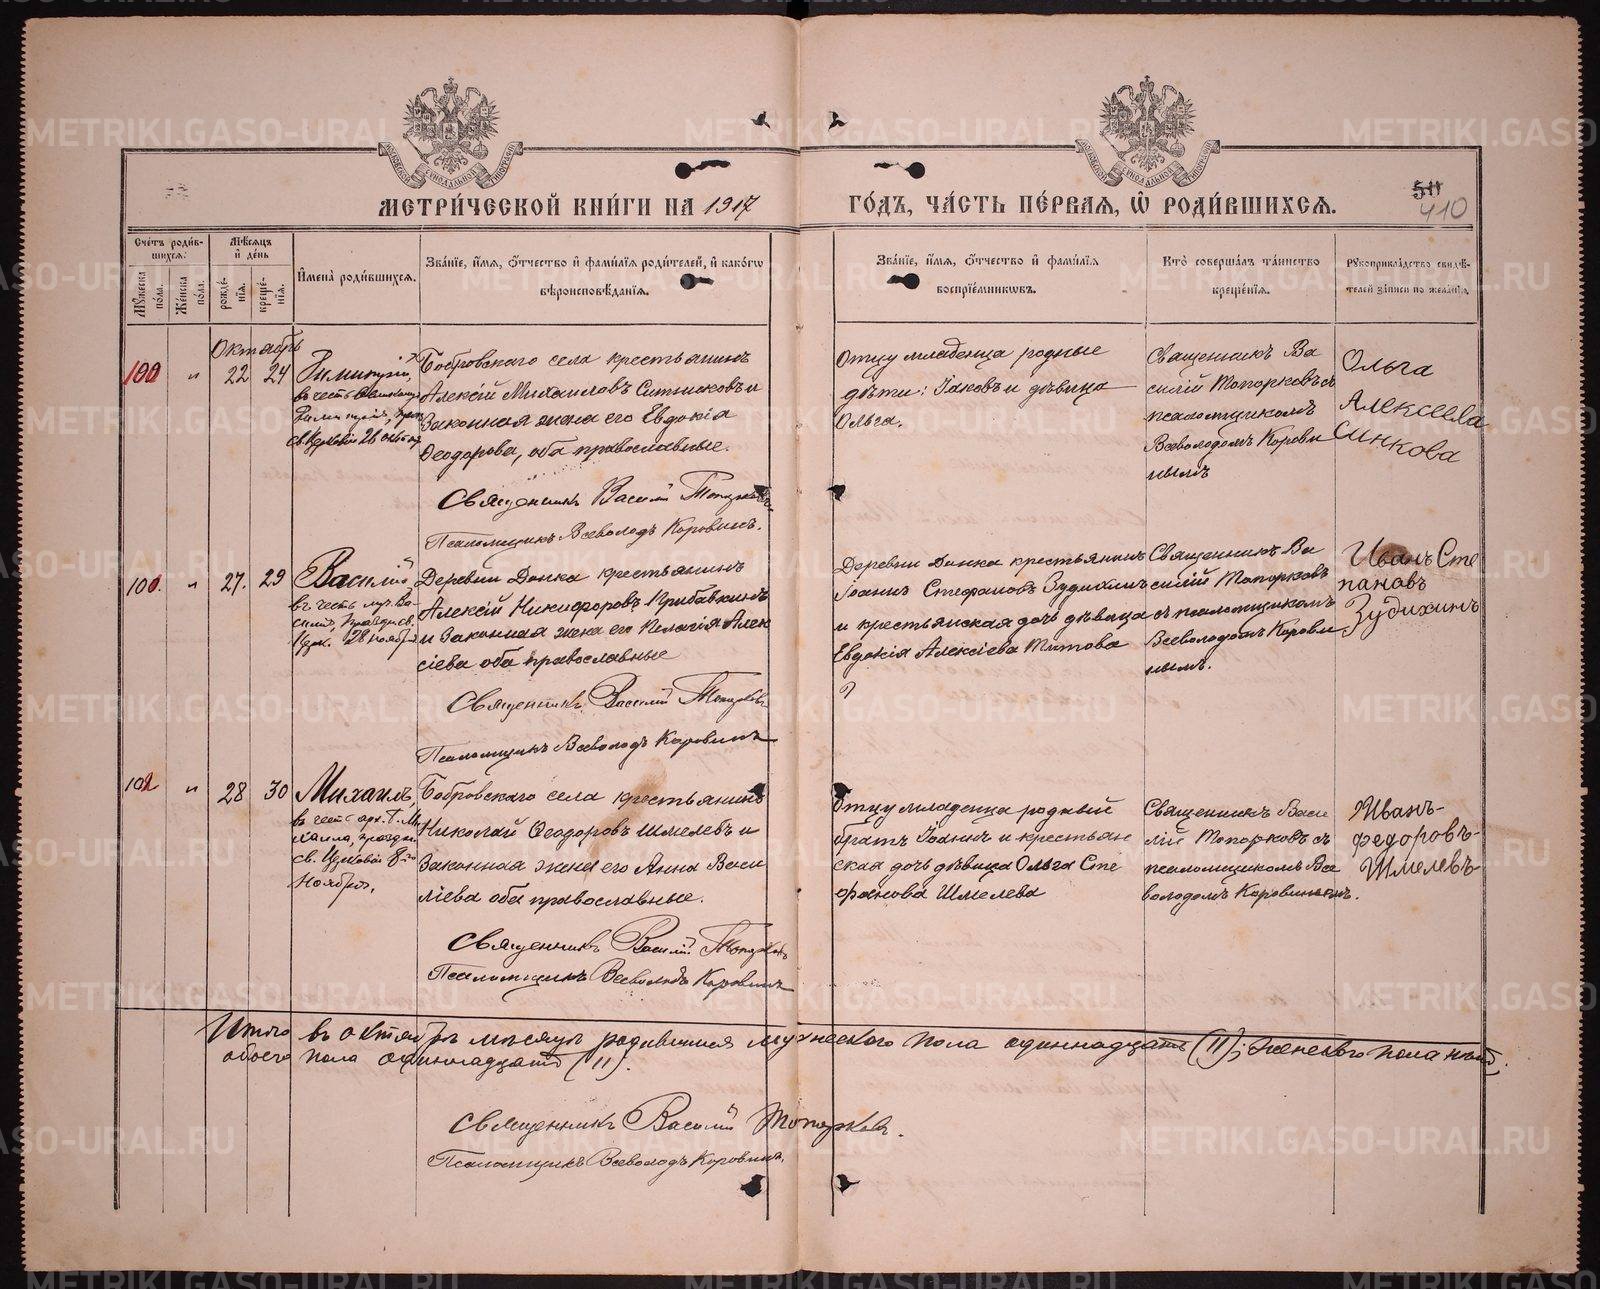 МЕТРИ́ЧЕСКОЙ КНИ́ГИ НА 1917
ГО́ДЪ, ЧА́СТЬ ПЕ́РВАЯ, Ѡ РОДИ́ВШИХСЯ.
511
410
Сче́тъ роди́в-
шихся.
Мѣ́сяцъ
и҆ де́нь
Му́жеска по́ла.
Же́нска по́ла.
рожде́-
нїѧ.
креще́-
нїѧ.
И҆мена̀ роди́вшихся.
Зва́нїе, и҆́мя, ѻ҆́тчество и҆ фами́лїя роди́телей, и҆ како́гѡ
вѣроисповѣ́данїя.
Зва́нїе, и҆́мя, ѻ҆́тчество и҆ фами́лїя
воспрїе́мникѡвъ.
Кто̀ соверша́лъ та́инство
креще́нїя.
Рꙋкоприкла́дство свидѣ́-
телей за́писи по жела́нїю.
Октябрь
100 " 22 24
въ честь
Бобровскаго села крестьянинъ
Алексѣй Михаиловъ и
Законная жена его Евдокія
Ѳеодорова, оба православные.
Священникъ Василій Топорковъ
Псаломщикъ Всеволодъ Коровинъ.
Отцу младенца родные
дѣти: Іаковъ и дѣвица
Ольга.
Священникъ Ва
силій Топорковъ съ
псаломщикомъ
Всеволодомъ Корови
нымъ
Ольга
Алексеева
101. " 27. 29
Василій
въ честь муч. Ва-
28 ноября
Деревни Донка крестьянинъ
Алексій Никифоровъ
и Законная жена его Пелагія Алек
сіева оба православные
Священникъ Василій Топорковъ
Псаломщикъ Всеволодъ Коровинъ
Деревни Донка крестьянинъ
Іоаннъ Стефановъ Зудихинъ
и крестьянская дочь дѣвица
Евдокія Алексіева Титова
Священникъ Ва
силій Топорковъ
съ псаломщикомъ
Всеволодомъ Корови
нымъ.
Иванъ Сте
пановъ
Зудихинъ
102 " 28 30
Михаилъ,
въ честь арх. Г. Ми
хаила, праздн.
св. Церковію 8-го
Ноября.
Бобровскаго села крестьянинъ
Николай Ѳеодоровъ Шмелевъ и
Законная жена его Анна Васи
ліева оба православные.
Священникъ Василій Топорковъ
Псаломщикъ Всеволодъ Коровинъ
Отцу младенца родный
братъ Іоаннъ и крестьян
ская дочь дѣвица Ольга Сте
фанова Шмелева
Священникъ Васи
лій Топорковъ съ
псаломщикомъ Все
володомъ Коровинымъ.
Иванъ-
Федоровъ-
Шмелевъ-
Итого въ октябрѣ мѣсяцѣ родившихся мужескаго пола одиннадцать (11); женскаго пола нѣтъ,
обоего пола одиннадцать (11).
Священникъ Василій Топорковъ.
Псаломщикъ Всеволодъ Коровинъ.
METRIKI.GASO-URAL.RU